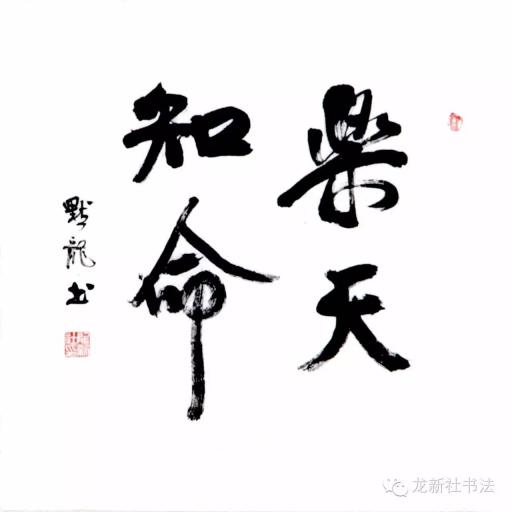 樂天
知命
默龍书
龙新社书法